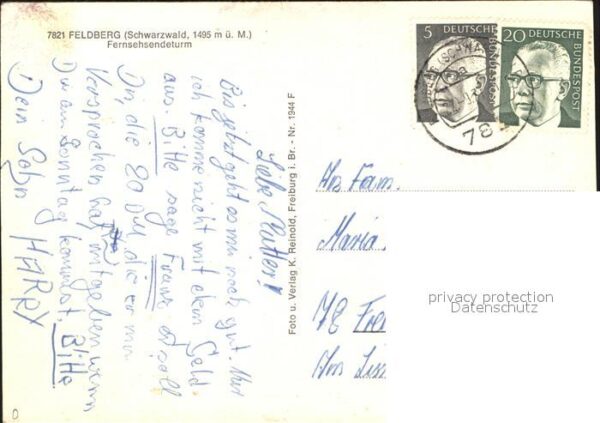 7821 FELDBERG (Schwarzwald, 1495 m ü. M.)
Fernsehsendeturm
Liebe Mutter!
Bis jetzt geht es mir noch gut. Nur
ich komme nicht mit dem Geld
aus. Bitte sage Franz er soll
Dir, die 20 DM, die er mir
Versprochen hat, mitgeben wenn
Du am Sonntag kommst. Bitte
Dein Sohn HARRY
Foto u. Verlag K. Reinold, Freiburg i. Br. - Nr. 1944 F
5
DEUTSCHE
BUNDESPOST
20
DEUTSCHE
BUNDESPOST
78
An Fam.
Maria
78
privacy protection
Datenschutz